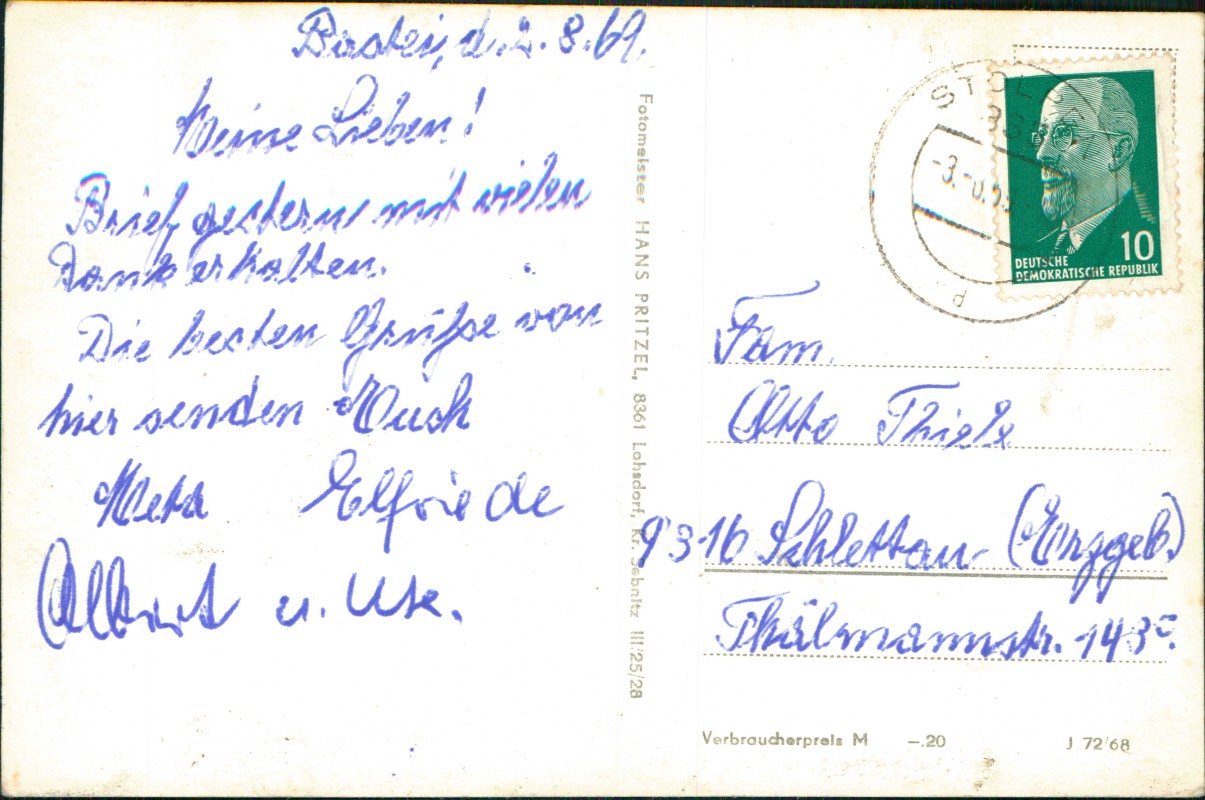 Bastei, d. 2.8.69.
Meine Lieben!
Brief gestern mit vielen
Dank erhalten.
Die besten Grüße von
hier senden Euch
Meta Elfriede
Albert u. Ute.
Fotomeister HANS PRITZEL, 8361 Lohsdorf, Kr. Sebnitz III/25/28
STOLP
-3.-
10
DEUTSCHE
DEMOKRATISCHE REPUBLIK
Fam.
Otto Thiele
9316 Schlettau (Erzgeb.)
Thälmannstr. 143c.
Verbraucherpreis M —.20 J 72/68